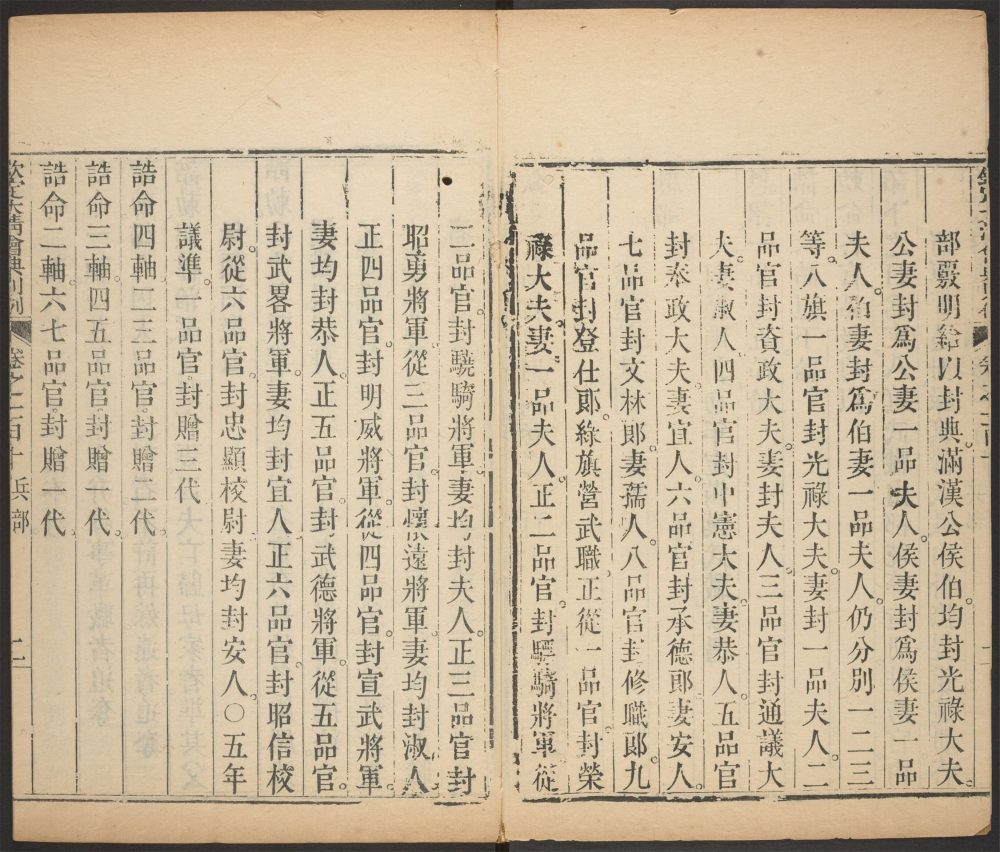 部覈明給以封典。滿漢公侯伯均封光祿大夫。
公妻封爲公妻一品夫人。侯妻封爲侯妻一品
夫人。伯妻封爲伯妻一品夫人。仍分別一二三
等。八旗一品官封光祿大夫。妻封一品夫人。二
品官封資政大夫。妻封夫人。三品官封通議大
夫。妻淑人。四品官封中憲大夫。妻恭人。五品官
封奉政大夫。妻宜人。六品官封承德郞。妻安人。
七品官封文林郞。妻孺人。八品官封修職郞。九
品官封登仕郞。綠旗營武職。正從一品官。封榮
祿大夫。妻一品夫人。正二品官。封驍騎將軍。從
二品官。封驍騎將軍。妻均封夫人。正三品官封
昭勇將軍。從三品官。封懷遠將軍。妻均封淑人
正四品官。封明威將軍。從四品官。封宣武將軍。
妻均封恭人。正五品官。封武德將軍。從五品官。
封武畧將軍。妻均封宜人。正六品官。封昭信校
尉。從六品官。封忠顯校尉。妻均封安人。○五年
議準。一品官。封贈三代
誥命四軸。二三品官。封贈二代。
誥命三軸。四五品官。封贈一代。
誥命二軸。六七品官。封贈一代。
欽定大淸會典則例 卷之一百十 兵部 二